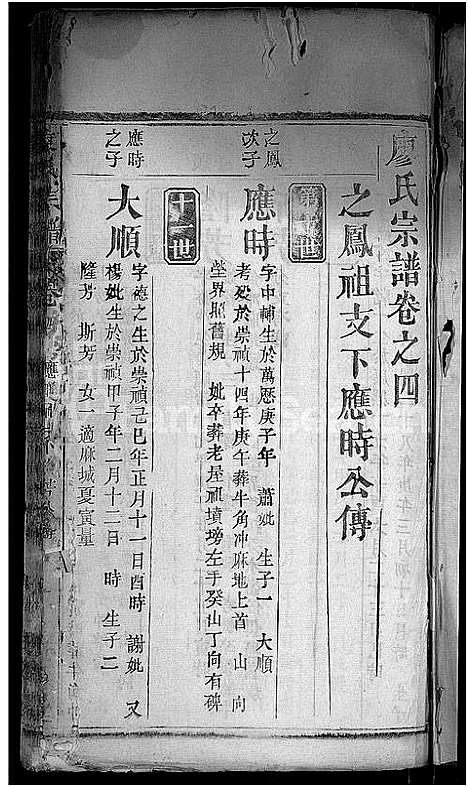 廖氏宗譜卷之四
之鳳祖支下應時公傳
第十世
之鳳
次子
應時
字中輔生於萬曆庚子年 蕭妣 生子一 大順
考歿於崇禎十四年庚午葬牛角冲麻地上首 山 向
塋界照舊規 妣卒葬老屋祖墳塝左手癸山丁向有碑
十一世
應時
之子
大順
字德之生於崇禎己巳年正月十一日酉時 謝妣 又
楊妣生於崇禎甲子年二月十二日 時 生子二
隆芳 斯芳 女一適麻城夏寅量